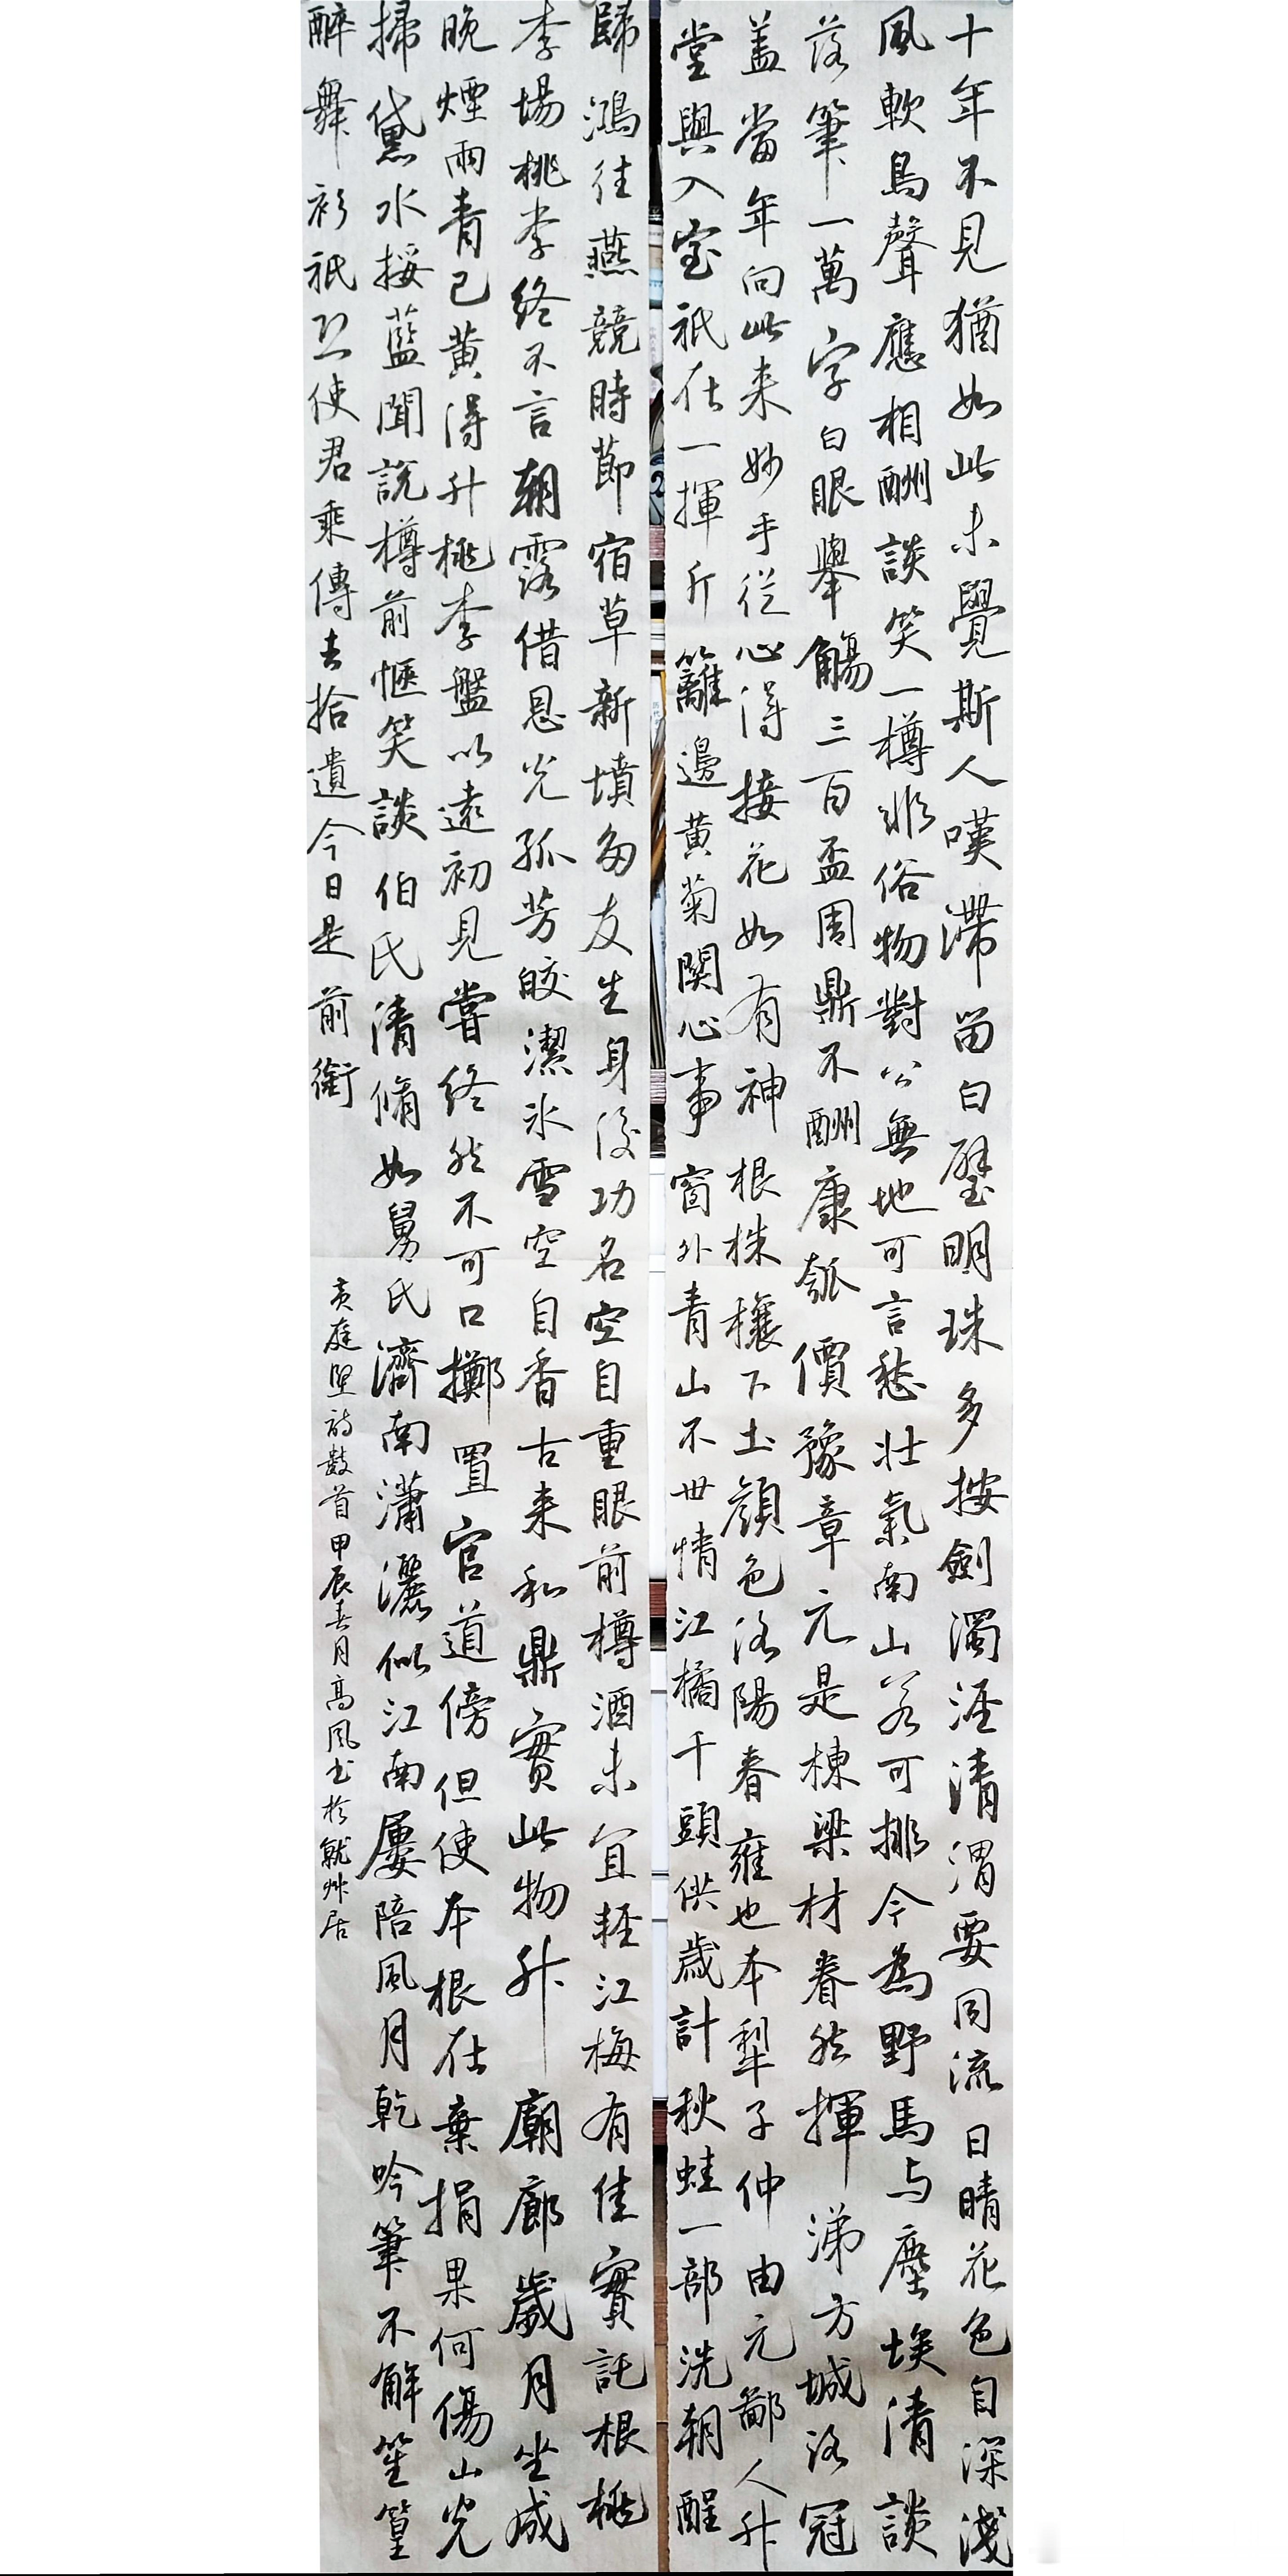 十年不見猶如此未覺斯人嘆滯留白璧明珠多按劍濁涇清渭要同流日晴花色自深淺
風軟鳥聲應相酬談笑一樽非俗物對公無地可言愁壯氣南山若可排今為野馬与塵埃清談
落筆一萬字白眼舉觴三百盃周鼎不酬康瓠價豫章元是棟梁材眷然揮涕方城路冠
盖當年向此来妙手從心得接花如有神根株穰下土顏色洛陽春雍也本犁子仲由元鄙人升
堂與入室祇在一揮斤籬邊黄菊関心事窗外青山不世情江橘千頭供歲計秋蛙一部洗朝醒
歸鴻往燕競時節宿草新墳多友生身後功名空自重眼前樽酒未宜輕江梅有佳實託根桃
李場桃李終不言朝露借恩光孤芳皎潔冰雪空自香古来和鼎實此物升廟廊歲月坐成
晚煙雨青已黄得升桃李盤以遠初見嘗終然不可口擲置官道傍但使本根在棄捐果何傷山光
掃黛水挼藍聞説樽前愜笑談伯氏清脩如舅氏濟南瀟灑似江南屢陪風月乾吟筆不解笙簧
醉舞衫祇恐使君乘傳去拾遺今日是前銜
黄庭堅詩数首甲辰春月高風书於就艸居